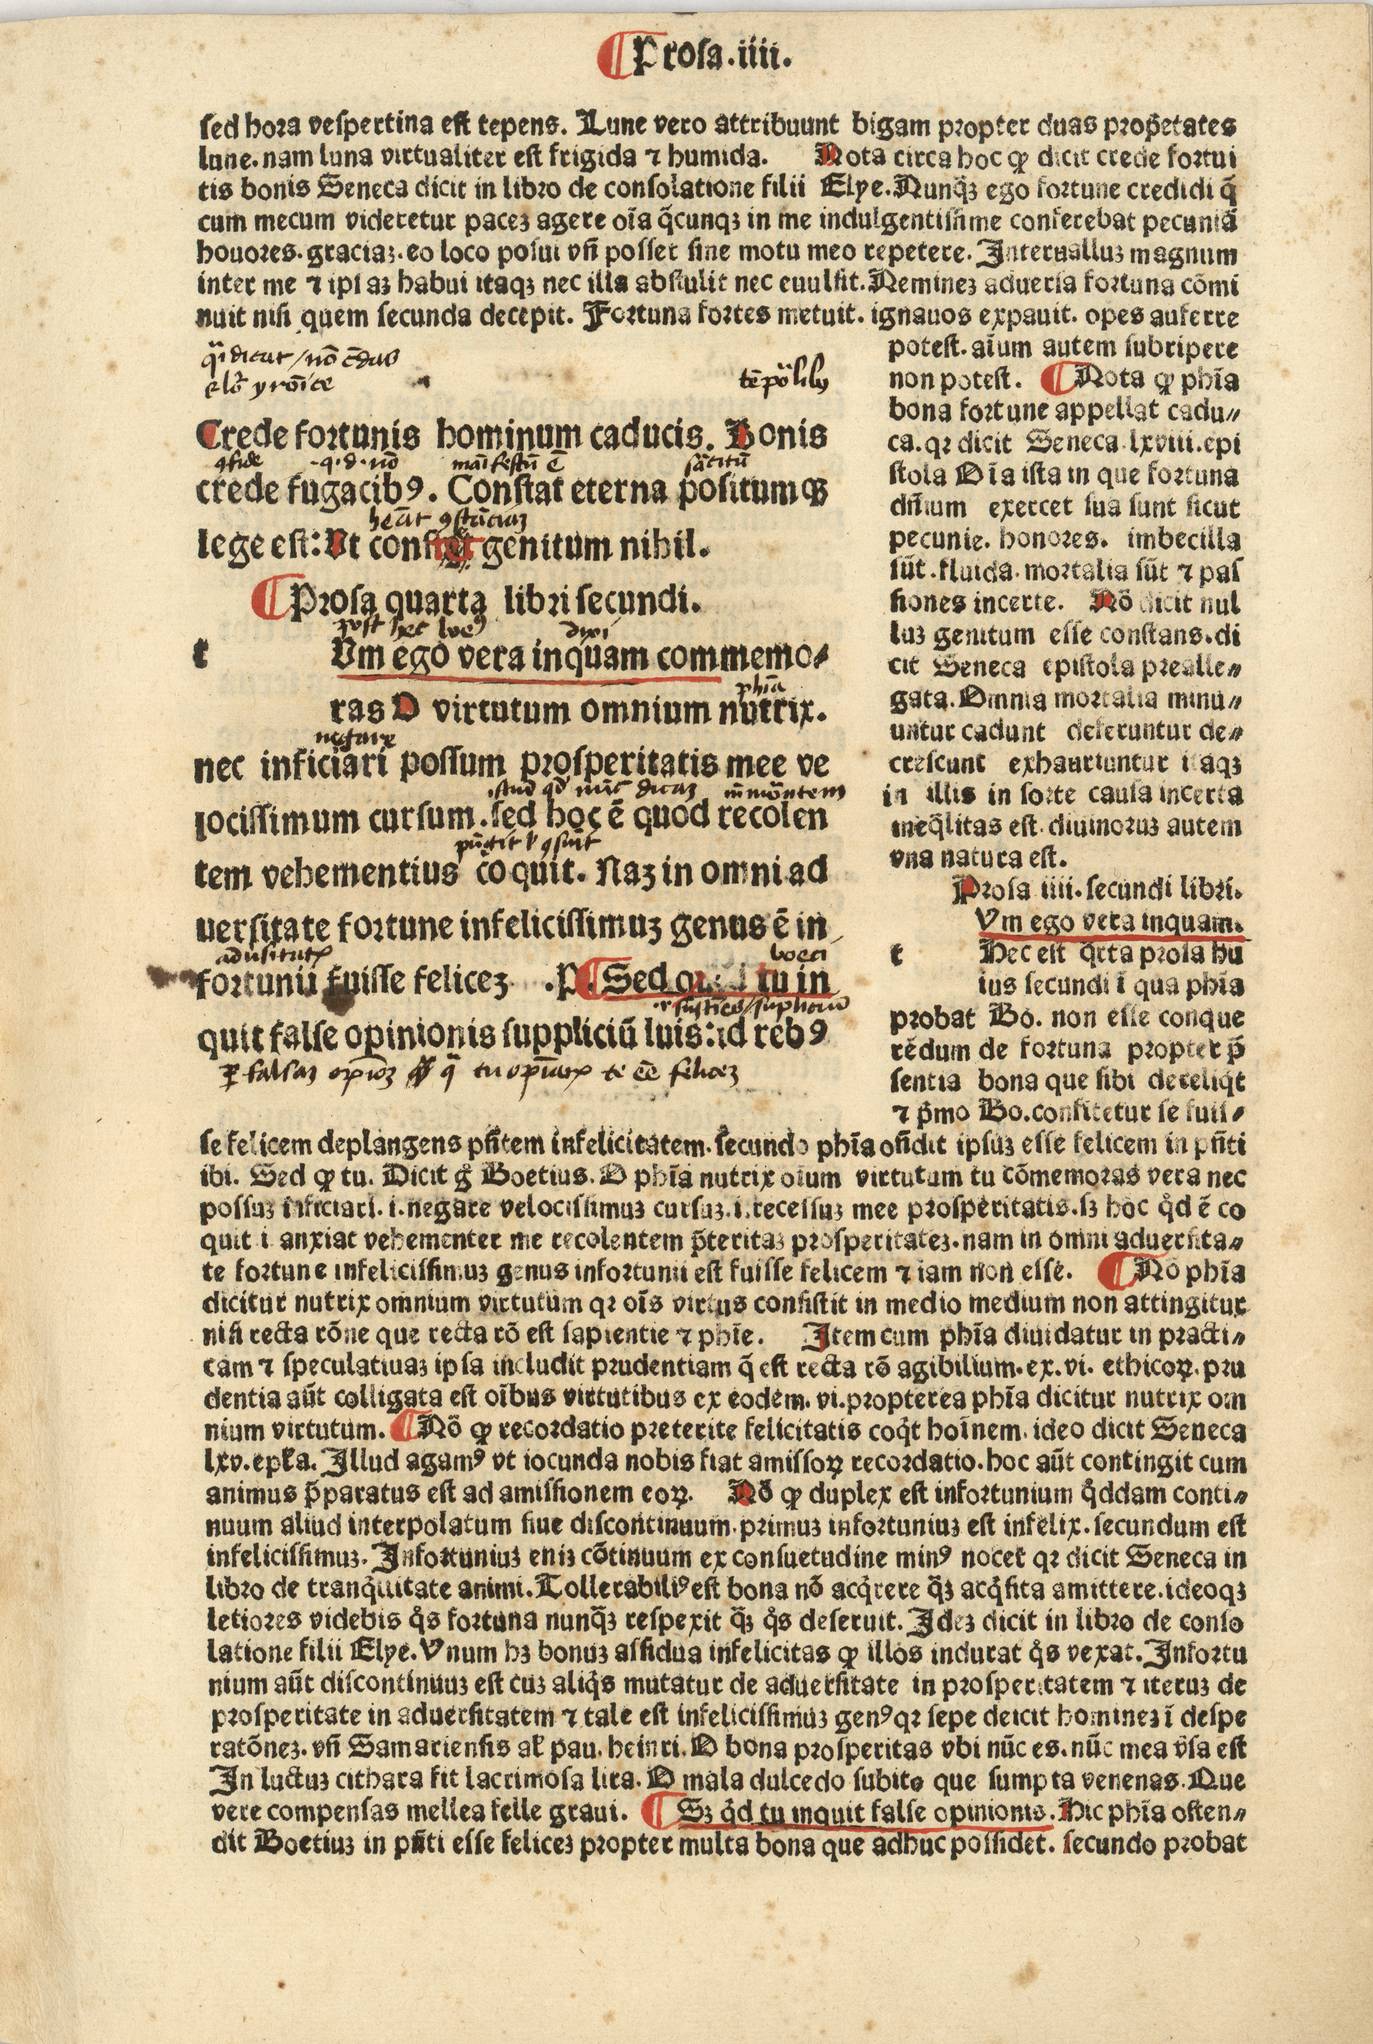 ¶ Prosa .iiii.
sed hora vespertina est tepens. Lune vero attribuunt bigam propter duas prop̃etates
lune. nam luna virtualiter est frigida ⁊ humida. Nota circa hoc ꝙ dicit crede fortui
tis bonis Seneca dicit in libro de consolatione filii Elye. Nunqꝫ ego fortune credidi q̃
cum mecum videretur paceꝫ agere oĩa q̃cunqꝫ in me indulgentissime conferebat pecuniã
houores. graciaꝫ. eo loco posui vñ posset sine motu meo repetere. Interualluꝫ magnum
inter me ⁊ ipsaꝫ habui itaqꝫ nec illa abstulit nec euulsit. Nemineꝫ aduersa fortuna cõmi
nuit nisi quem secunda decepit. Fortuna fortes metuit. ignauos expauit. opes auferre
potest. aĩum autem subripere
non potest. ¶ Nota ꝙ phĩa
bona fortune appellat cadu〃
ca. qꝛ dicit Seneca lxviii. epi
stola Oĩa ista in que fortuna
dñium exercet sua sunt sicut
pecunie. honores. imbecilla
sũt. fluida. mortalia sũt ⁊ pas
siones incerte. Nõ dicit nul
luꝫ genitum esse constans. di
cit Seneca epistola prealle〃
gata. Omnia mortalia minu〃
untur cadunt deferuntur de〃
crescunt exhauriuntur itaqꝫ
in illis in sorte causa incerta
ineq̃litas est. diuinoruꝫ autem
vna natura est.
Crede fortunis hominum caducis. Bonis
crede fugacibꝰ. Constat eterna positumqꝫ
manifestũ ẽ
lege est: Ut genitum nihil.
¶ Prosa quarta libri secundi.
post hec boeꝰ dixi
t Um ego vera inquam commemo〃
phĩa
ras O virtutum omnium nutrix.
negare
nec inficiari possum prosperitatis mee ve
locissimum cursum. sed hoc ẽ quod recolen
tem vehementius coquit. Naꝫ in omni ad
uersitate fortune infelicissimuꝫ genus ẽ in
boeci
fortunii fuisse feliceꝫ .P. ¶ Sed tu in
quit false opinionis suppliciũ luis: id rebꝰ
Prosa iiii. secundi libri.
Um ego vera inquam.
t Hec est q̃rta prosa hu
ius secundi ĩ qua phĩa
probat Bo. non esse conque
rẽdum de fortuna propter p̃
sentia bona que sibi dereliq̃t
⁊ p̃mo Bo. confitetur se fuis〃
se felicem deplangens pñtem infelicitatem. secundo phĩa oñdit ipsuꝫ esse felicem in pñti
ibi. Sed ꝙ tu. Dicit g̊ Boetius. O phĩa nutrix oĩum virtutum tu cõmemoras vera nec
possuꝫ inficiari. i. negare velocissimuꝫ cursuꝫ. i. recessuꝫ mee prosperitatis. sꝫ hoc q̊d ẽ co
quit i anxiat vehementer me recolentem p̃teritaꝫ prosperitateꝫ. nam in omni aduersita〃
te fortune infelicissimuꝫ genus infortunii est fuisse felicem ⁊ iam non esse. ¶ Nõ phĩa
dicitur nutrix omnium virtutum qꝛ oĩs virtus consistit in medio medium non attingitur
nisi recta rõne que recta rõ est sapientie ⁊ phĩe. Item cum phĩa diuidatur in practi〃
cam ⁊ speculatiuaꝫ ipsa includit prudentiam q̃ est recta rõ agibilium. ex. vi. ethicoꝝ. pru
dentia aũt colligata est oĩbus virtutibus ex eodem. vi. propterea phĩa dicitur nutrix om
nium virtutum. ¶ Nõ ꝙ recordatio preterite felicitatis coq̃t hoĩnem. ideo dicit Seneca
lxv. epl̃a. Illud agamꝰ vt iocunda nobis fiat amissoꝝ recordatio. hoc aũt contingit cum
animus p̃paratus est ad amissionem eoꝝ. Nõ ꝙ duplex est infortunium q̊ddam conti〃
nuum aliud interpolatum siue discontinuum. primuꝫ infortuniuꝫ est infelix. secundum est
infelicissimuꝫ. Infortuniuꝫ eniꝫ cõtinuum ex consuetudine minꝰ nocet qꝛ dicit Seneca in
libro de tranq̃uitate animi. Tollerabiliꝰ est bona nõ acq̃rere q̃ꝫ acq̃sita amittere. ideoqꝫ
letiores videbis q̊s fortuna nunq̃ꝫ respexit q̃ꝫ q̊s deseruit. Ideꝫ dicit in libro de conso
latione filii Elye. Vnum hꝫ bonuꝫ assidua infelicitas ꝙ illos indurat q̊s vexat. Infortu
nium aũt discontinuuꝫ est cuꝫ aliq̊s mutatur de aduersitate in prosperitatem ⁊ iteruꝫ de
prosperitate in aduersitatem ⁊ tale est infelicissimuꝫ genꝰ qꝛ sepe deicit homineꝫ ĩ despe
ratõneꝫ. vñ Samariensis al̃ pau. heinri. O bona prosperitas vbi nũc es. nũc mea v̉sa est
In luctuꝫ cithara fit lacrimosa lira. O mala dulcedo subito que sumpta venenas. Que
vere compensas mellea felle graui. ¶ Sꝫ q̊d tu inquit false opinionis. Hic phĩa osten〃
dit Boetiuꝫ in pñti esse feliceꝫ propter multa bona que adhuc possidet. secundo probat